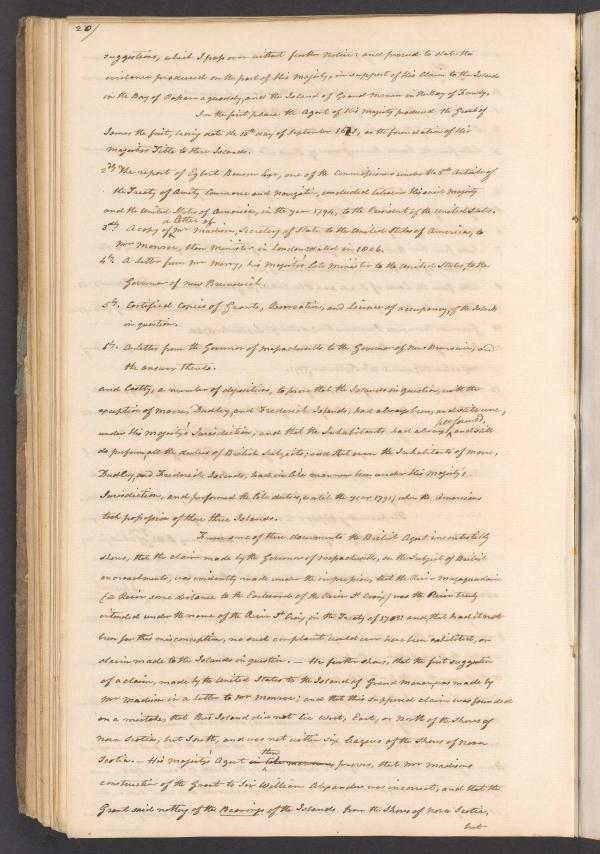 20/
suggestions, which I pass over without further notice: and proceed to state the
evidence produced on the part of His Majesty, in support of His Claim to the Islands
in the Bay of Passamaquoddy, and the Island of Grand Menan in the Bay of Fundy.
In the first place the Agent of His Majesty produced the Grant of
James the first, being date the 10th day of September 1621, as the foundation of His
Majestys Title to these Islands.
2dly The report of Egbert Benson Esqr, one of the Commissioners under the 5th Article of
the Treaty of Amity Commerce and Navigation, concluded between His said Majesty
and the United States of America, in the year 1794, to the President of the United States.
a letter of
3dly. A copy of Mr Madison, Secretary of State to the United States of America, to
Mr Monroe, then Minister in London dated in 1806.
4th. A letter from Mr Merry, his Majesty's late Minister to the United States, to the
Governor of New Brunswick.
5th. Certified Copies of Grants, Reservation, and Licence of occupancy, of the Islands
in question.
6th. A letter from the Governor of Massachusetts to the Governor of New Brunswick, and
the answer thereto.
and Lastly, a number of depositions, to prove that the Islands in question, with the
exception of Moose, Dudley, and Frederick Islands, had always been, and still were,
under His Majesty's Jurisdiction; and that the Inhabitants had always
performed,
and still
do perform, all the duties of British Subjects; and that even the Inhabitants of Moose,
Dudley, and Frederick Islands, had in like manner been under His Majesty's
Jurisdiction, and performed the like duties, until the year 1791, when the Americans
took possession of these three Islands.
From some of these documents the British Agent incontestibly
shows, that the claim made by the Governor of Massachusetts, on the Subject of British
encroachments, was evidently made under the impression, that the River Magaguadavic
(a River some distance to the Eastward of the River St Croix) was the River truly
intended under the name of the River St Croix, in the Treaty of 1783; and that had it not
been for this misconception, no such complaint would ever have been exhibited, or
claim made to the Islands in question. — He further shows, that the first suggestion
of a claim, made by the United States to the Island of Grand Manan, was made by
Mr Madison in a letter to Mr Monroe; and that this supposed claim was founded
on a mistake, that this Island did not lie West, East, or North of the Shores of
Nova Scotia, but South, and was not within six leagues of the Shores of Nova
then
Scotia. — His Majesty's Agent in like manner, proves, that Mr Madisons
construction of the Grant to Sir William Alexander was incorrect, and that the
Grant said nothing of the Bearings of the Islands, from the Shores of Nova Scotia,
but